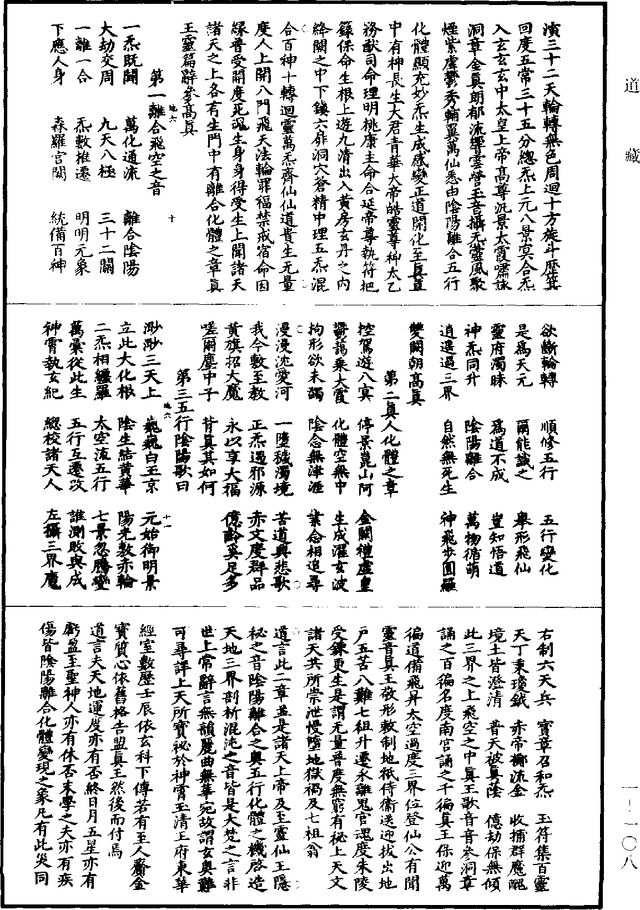 道藏
演三十二天輪轉無色周迴十方旋斗歷箕
回度五常三十五分總炁上元八景冥合炁
入玄玄玄中太皇上帝高尊沉景太霞嘯詠
洞章金真朗郁流響雲營玉音攝炁靈風歌
煙紫虛鬱秀輔翼萬仙悉由陰陽離合五行
化體顯充妙炁生成感變正道開化至真皇
中有神長生大君青華大帝皓靈尊神太乙
務猷司命理明桃康主命合延帝尊執符把
籙保命生根上遊九清出入黃房玄丹之內
絳闕之中下鎮六府洞六蒼精中理五炁混
合百神十轉迴靈萬炁齊仙仙道貴生无量
度人上開八門飛天法輪罪福禁戒宿命因
緣普受開度死魂生身身得受生上聞諸天
諸天之上各有生門中有離合化體之章真
王靈篇辭參高真
地六 十
第一離合飛空之音
一炁既開 萬化通流 離合陰陽
大劫交周 九天八極 三十二關
一離一合 炁數推遷 明明元象
下應人身 森羅宮闕 統備百神
欲斷輪轉 順修五行 五行變化
是為天元 爾能識之 舉形飛仙
靈府濁昧 為道不成 豈知悟道
神炁同升 陰陽離合 萬物循萌
逍遙過三界 自然無死生 神飛步圓羅
雙闕朝高真
第二真人化體之章
控駕遊八冥 停景崑山阿 金闕禮虛皇
鬱藹乘大霞 化體空無中 生成濯玄波
拘形欲未蠲 陰念無津涯 業合相追尋
漫漫沈愛河 一墮穢濁境 苦道興悲歌
我今敷至教 正炁遏邪源 赤文度群品
黃旗招大魔 永以享大福 億齡奚足多
嗟爾塵中子 背真其如何
第三五行陰陽歌曰
地六 十一
渺渺三天上 巍巍白玉京 元始御明景
立此大化根 陰生結黃華 陽光敷赤輪
二炁相纏羅 太空流五行 七景忽騰變
萬彙從此生 五行互遷改 誰測敗與成
神霄執玄紀 總校諸天人 左攝三界魔
右制六天兵 寶章召和炁 玉符集百靈
天丁秉瓊鉞 赤帝擲流金 收捕群魔醜
境土皆澄清 普天被真陰 億劫保無傾
此三界之上飛空之中真王歌音音參洞章
誦之百徧名度南宮誦之千徧真王保迎萬
徧道備飛昇太空過度三界位登仙公有聞
靈音真王敬形敕制地祇侍衛送迎拔出地
戶五苦八難七祖升遷永離鬼官魂度朱陵
受鍊更生是謂无量普度無窮有祕上天文
諸天共所崇泄慢墮地獄禍及七祖翁
道言此二章並是諸天上帝及至靈仙王隱
祕之音陰陽離合之奧五行化體之機啓造
天地三界剖析混沌之音皆是大梵之言非
世上常辭言無韻麗曲無華宛故謂玄奧難
可尋詳上天所寶祕於神霄玉清王府東華
經室數歷壬辰依玄科下傳若有至人齎金
寶質心依舊格告盟真王然後而付焉
道言夫天地運度亦有否終日月五星亦有
虧盈至聖神人亦有休否末學之夫亦有疾
傷皆陰陽離合化體變現之象凡有此災同
一-一〇八